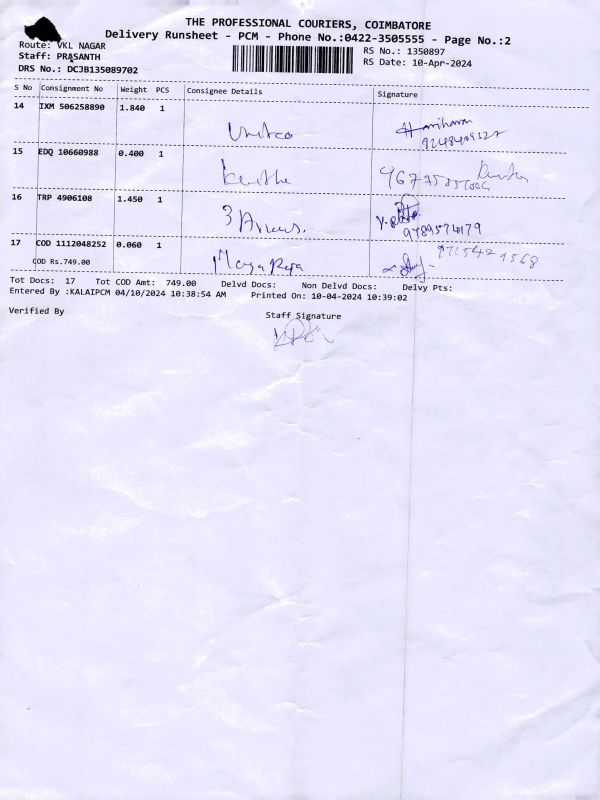 THE PROFESSIONAL COURIERS, COIMBATORE
Delivery Runsheet - PCM - Phone No.:0422-3505555 - Page No.:2
Route: VKL NAGAR
RS No.: 1350897
Staff: PRASANTH
RS Date: 10-Apr-2024
DRS No.: DCJB135089702
S No Consignment No Weight PCS Consignee Details Signature
14 IXM 506258890 1.840 1 Unitco Hariharan
15 EDQ 10660988 0.400 1
16 TRP 4906108 1.450 1 3 
9789574179
17 COD 1112048252 0.060 1
COD Rs.749.00
Tot Docs: 17 Tot COD Amt: 749.00 Delvd Docs: Non Delvd Docs: Delvy Pts:
Entered By :KALAIPCM 04/10/2024 10:38:54 AM Printed On: 10-04-2024 10:39:02
Verified By Staff Signature